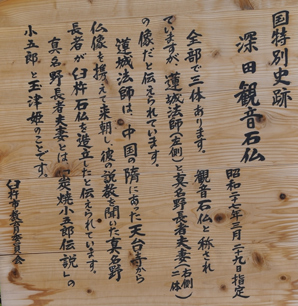 国特別史跡
深田観音石仏
昭和二七年三月二九日指定
全部で三体あります。観音石仏と称され
ていますが、蓮城法師(左側)と真名野長者夫妻(右側二体)
の像だと伝えられています。
蓮城法師は、中国の隋にあった天台寺から
仏像を携えて来朝し、彼の説教を聞いた真名野
長者が臼杵石仏を造立したと伝えられています。
真名野長者夫妻とは「炭焼小五郎伝説」の
小五郎と玉津姫のことです。
臼杵市教育委員会